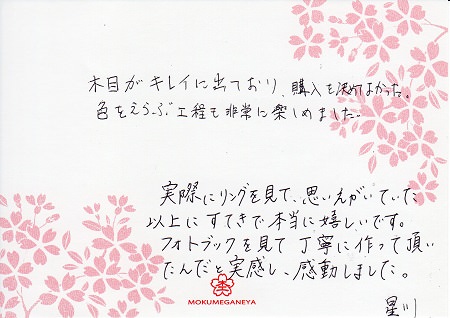 木目がキレイに出ており、購入を決めてよかった。
色をえらぶ工程も非常に楽しめました。
実際にリングを見て、思いえがいていた
以上にすてきで本当に嬉しいです。
フォトブックを見て丁寧に作って頂い
たんだと実感し、感動しました。
MOKUMEGANEYA
星川